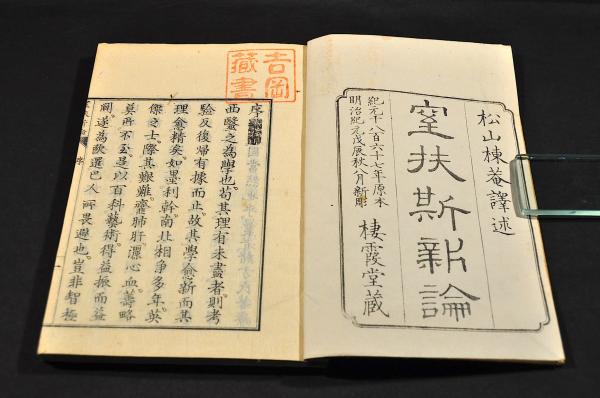 松山棟菴譯述
窒扶斯新論
紀元千八百六十七年原本
明治紀元戊辰秋八月新彫
棲霞堂蔵
吉岡
藏書
序
西醫之為學也苟其理有未盡者則考
驗反復帰有據而止故其學愈新而其
理愈精矣如墨利幹南北相爭多年英
傑之士際其艱難齎肺肝瀝心血籌略
莫所不至是以百科藝術得益振而益
闢遂為歐邏巴人所畏避也豈非智極